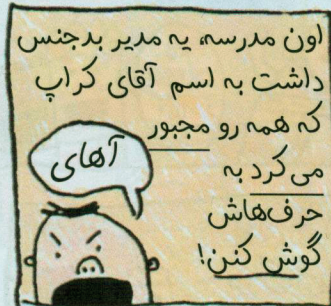 اون مدرسه، یه مدیر بدجنس
داشت به اسم آقای کراپ
که همه رو مجبور
می‌کرد به
حرف‌هاش
گوش کنن!
آهای